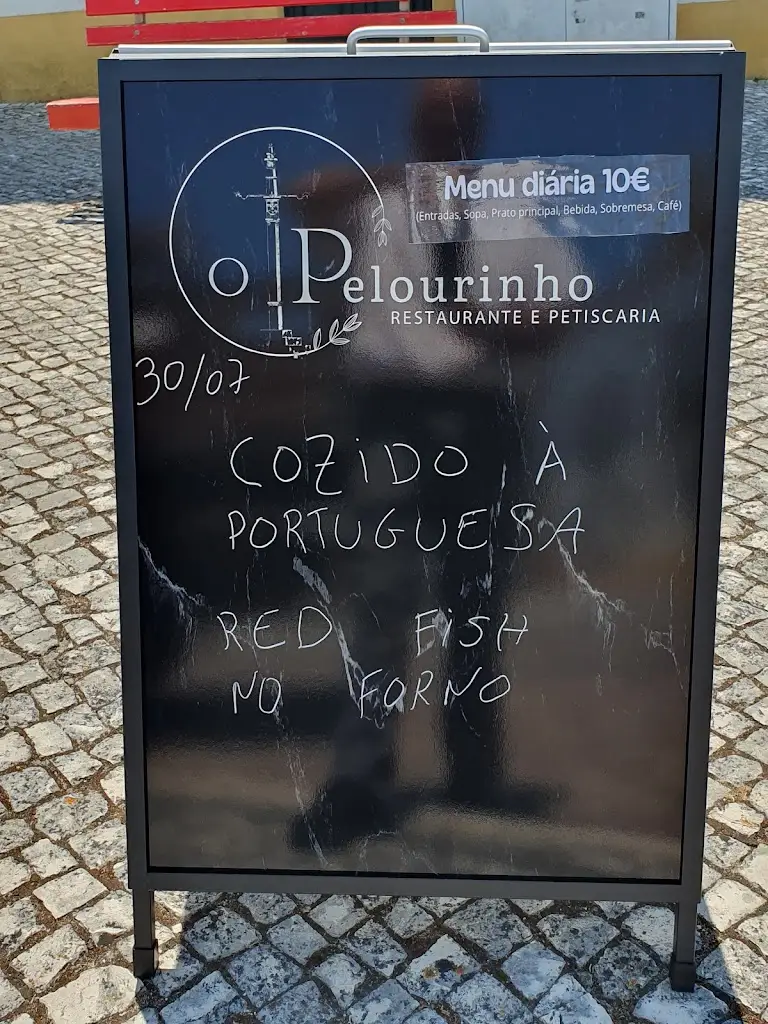 Menu diária 10€
(Entradas, Sopa, Prato principal, Bebida, Sobremesa, Café)
O Pelourinho
RESTAURANTE E PETISCARIA
30/07
COZIDO À
PORTUGUESA
RED FISH
NO FORNO